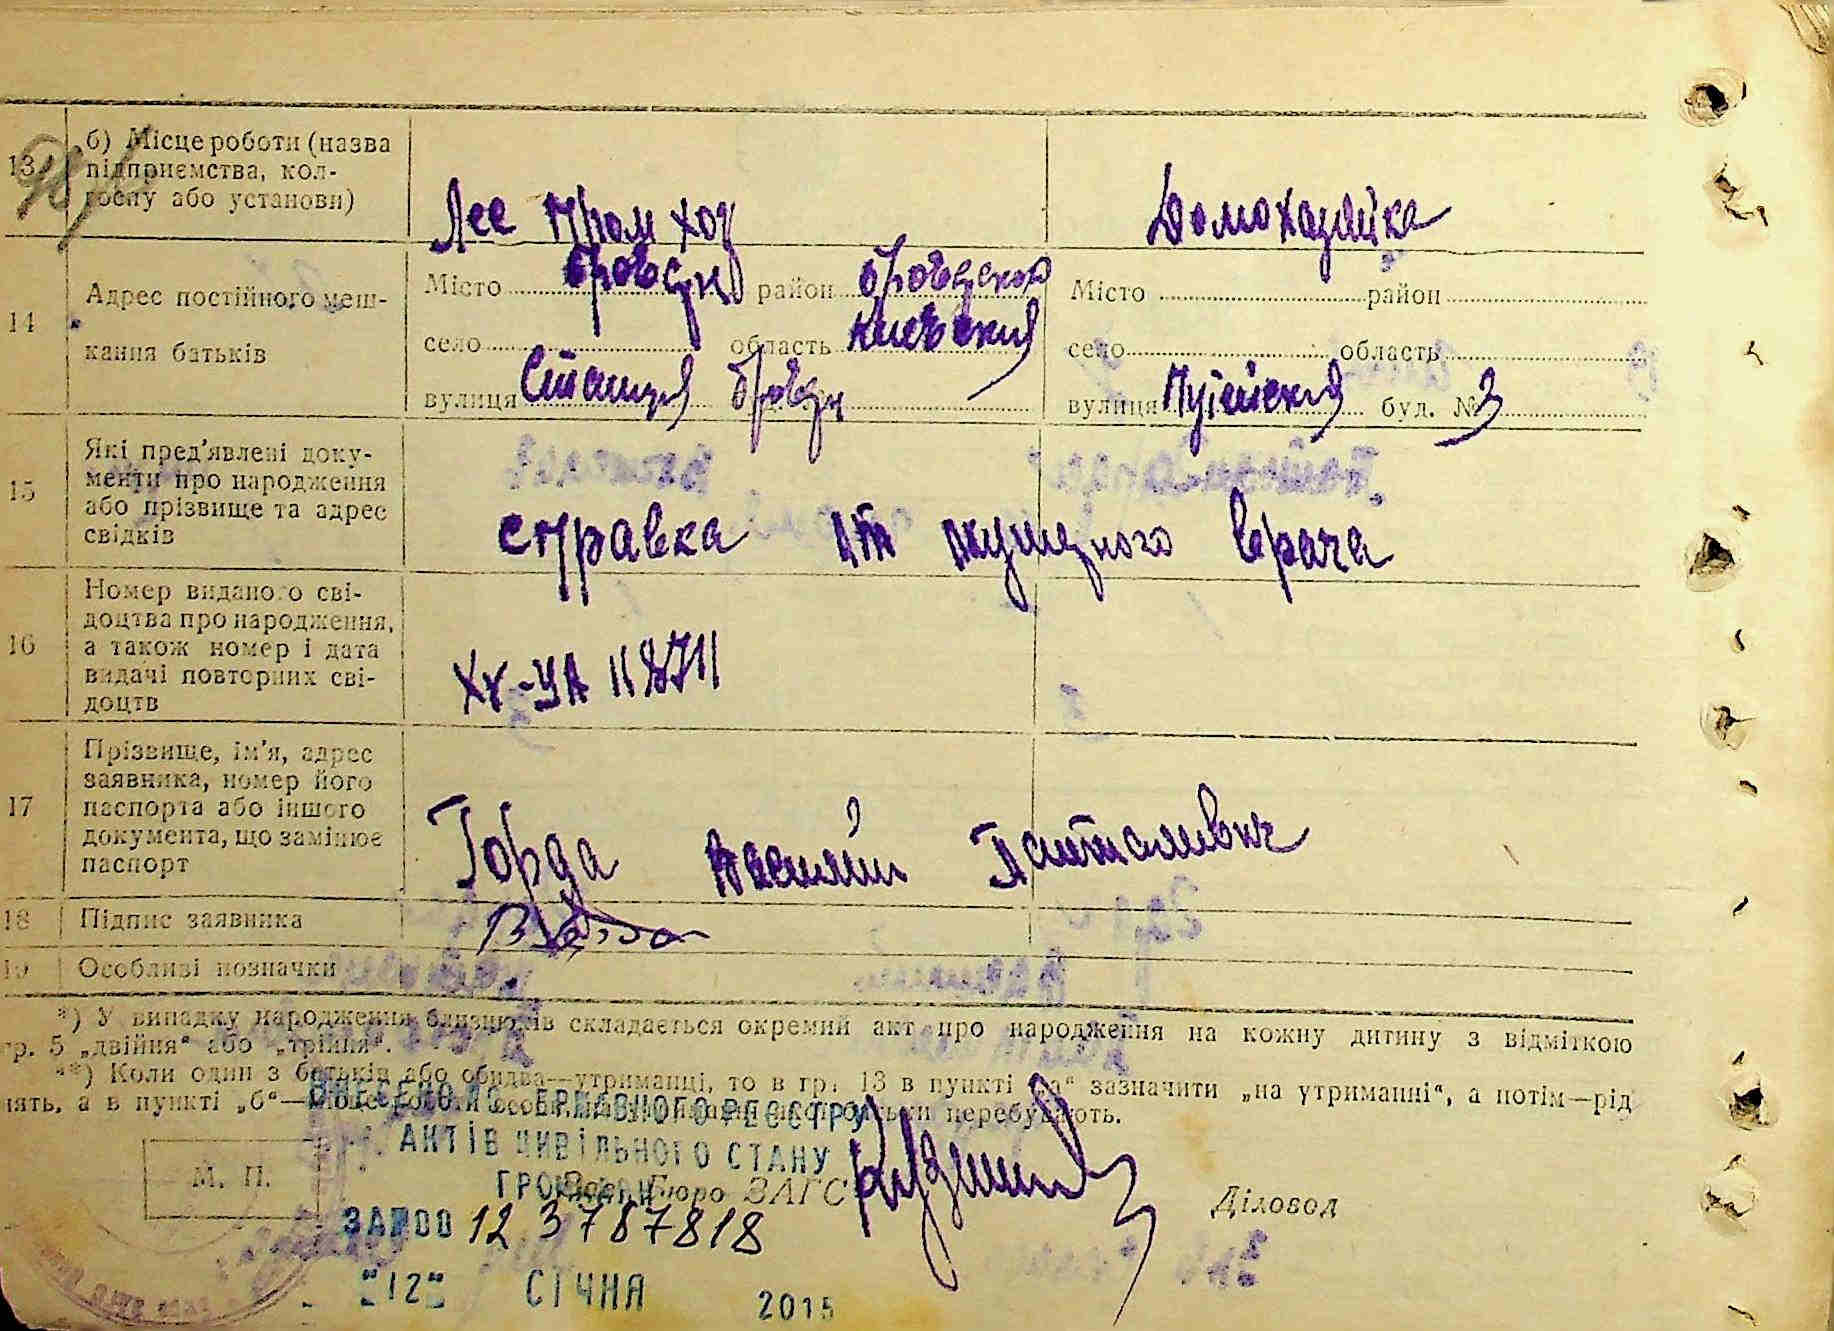 13 б) Місце роботи (назва підприємства, колгоспу або установи) Лес пром хоз Домохазайка
14 Адрес постійного мешкання батьків
Місто Бровари район Броварской Місто район
село область Киевския село область
вулиця Станция Бровари вулиця Путейския буд. № 3
15 Які пред'явлені документи про народження або прізвище та адрес свідків справка от акушерного врача
16 Номер виданого свідоцтва про народження, а також номер і дата видачі повторних свідоцтв
17 Прізвище, ім'я, адрес заявника, номер його паспорта або іншого документа, що замінює паспорт Горда Василий
18 Підпис заявника
19 Особливі позначки
*) У випадку народження близнюків складається окремий акт про народження на кожну дитину з відміткою
гр. 5 „двійня“ або „трійня“.
**) Коли один з батьків або обидва—утриманці, то в гр. 13 в пункті „а“ зазначити „на утриманні“, а потім—рід
нять, а в пункті „б“— перебувають.
ВНЕСЕНО ДО ДЕРЖАВНОГО РЕЄСТРУ
АКТІВ ЦИВІЛЬНОГО СТАНУ
ГРОМАДЯН
М. П. Зав. Бюро ЗАГС Діловод
ЗА №00 12 3787818
"12" СІЧНЯ 2015